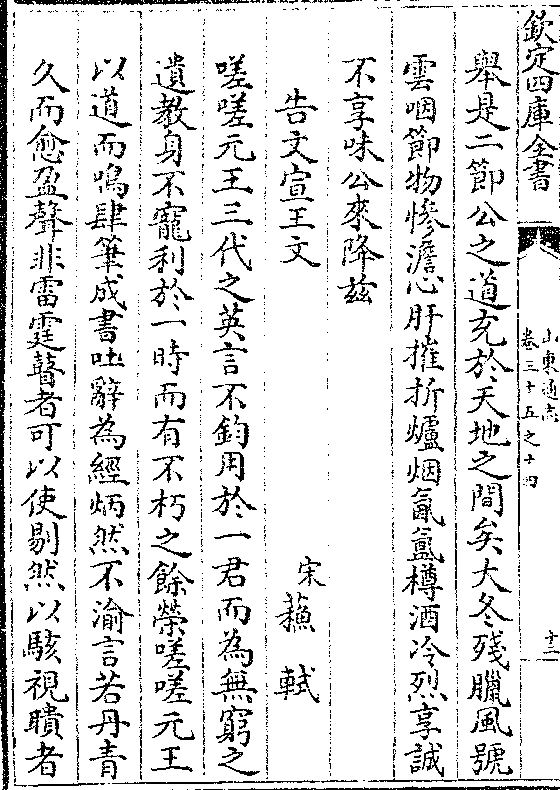 欽定四庫全書
山東通志
卷三十五之十四
十二
舉是二節公之道充於天地之間矣大冬殘臘風號
雲咽節物慘澹心肝摧折爐烟氤氳樽酒冷烈享誠
不享味公來降茲
告文宣王文
宋蘇軾
嗟嗟元王三代之英言不鈞用於一君而為無窮之
遺教身不寵利於一時而有不朽之餘榮嗟嗟元王
以道而鳴肆筆成書吐辭為經炳然不渝言若丹青
久而愈盈聲非雷霆瞽者可以使剔然以駭視聵者